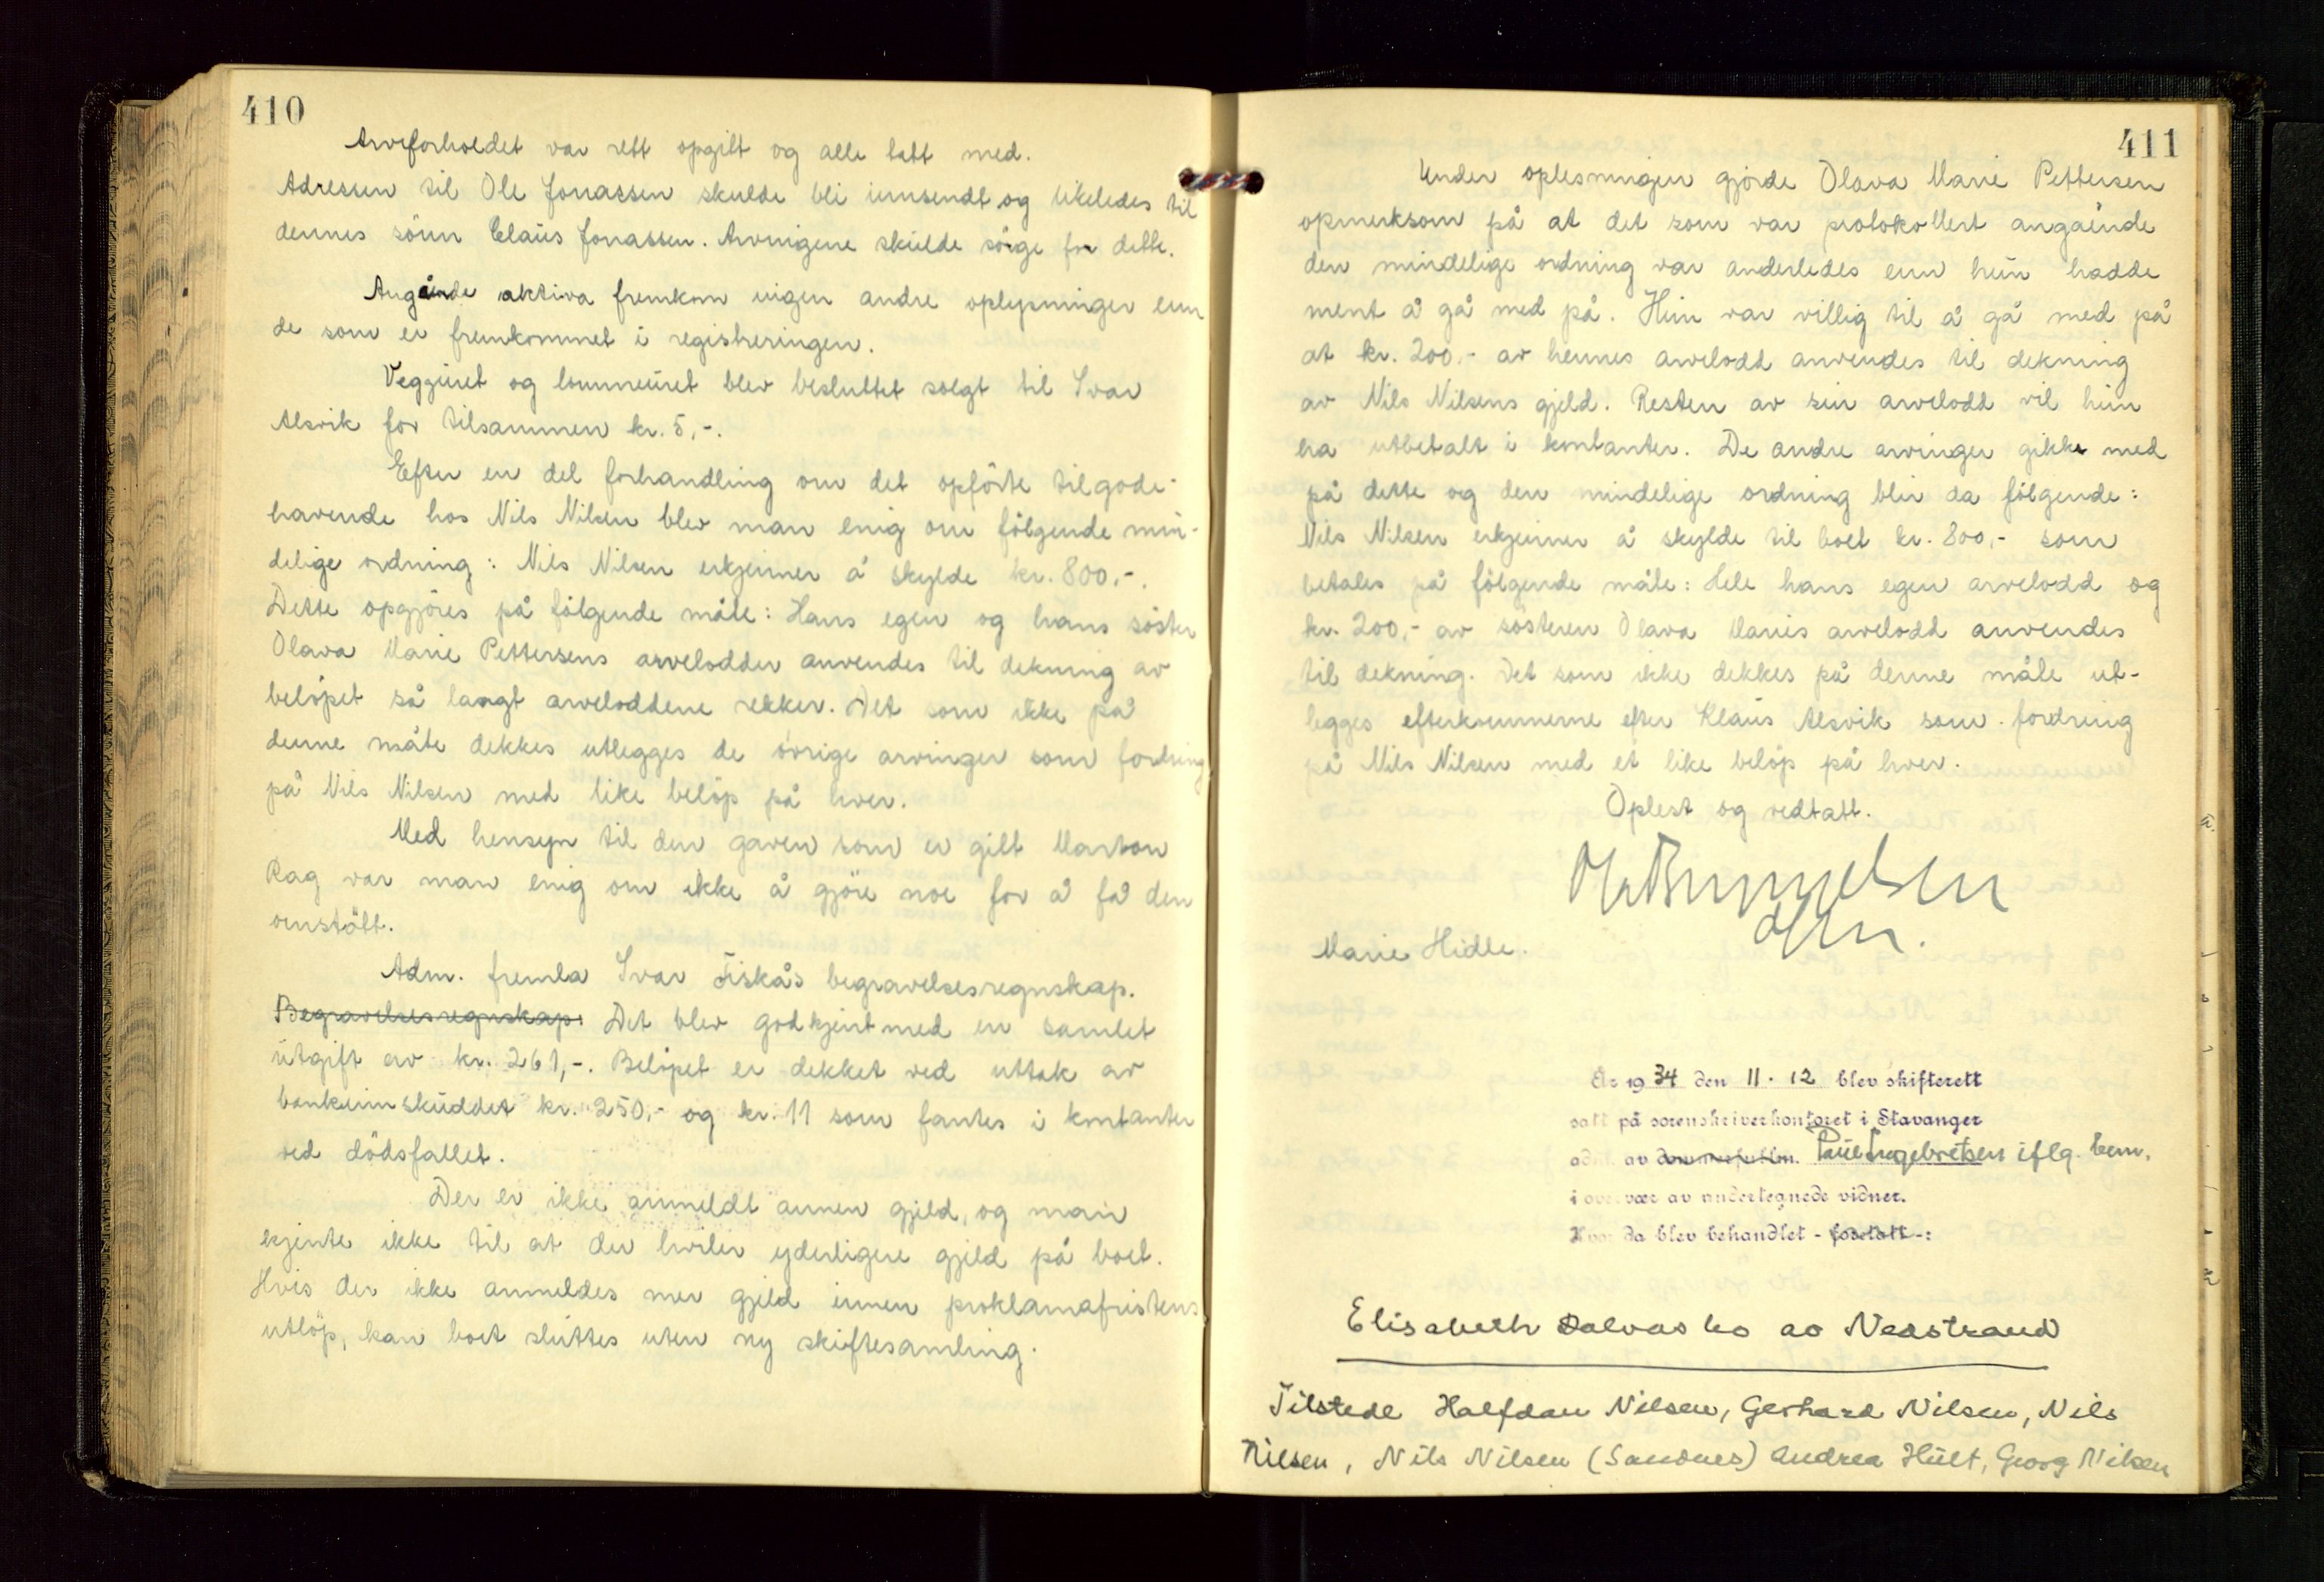 410
Arveforholdet var rett opgitt og alle tatt med.
Adressen til Ole Jonassen skulde bli innsendt og likeledes til
dennes sönn Claus Jonassen. Arvingene skulde sörge for dette.
Angående aktiva fremkom ingen andre oplysninger enn
de som er fremkommet i registreringen.
Vegguret og lommeuret blev besluttet solgt til Ivar
Alsvik for tilsammen kr. 5,-.
Efter en del forhandling om det opförte tilgode-
havende hos Nils Nilsen blev man enig om fölgende min-
delige ordning: Nils Nilsen erkjenner å skylde kr. 800,-.
Dette opgjöres på fölgende måte: Hans egen og hans söster
Olava Marie Pettersens arvelodder anvendes til dekning av
belöpet så langt arveloddene rekker. Det som ikke på
denne måte dekkes utlegges de övrige arvinger som fordring
på Nils Nilsen med like belöp på hver.
Med hensyn til den gaven som er gitt Marton
Rag var man enig om ikke å gjöre noe for å få den
omstött.
Adm. fremla Ivar Fiskås begravelsesregnskap.
Begravelsesregnskap: Det blev godkjent med en samlet
utgift av kr. 261,-. Belöpet er dekket ved uttak av
bankinnskuddet kr. 250,- og kr. 11 som fantes i kontanter
ved dödsfallet.
Der er ikke anmeldt annen gjeld, og man
kjente ikke til at der hviler yderligere gjeld på boet.
Hvis der ikke anmeldes mer gjeld innen proklamafristens
utlöp, kan boet sluttes uten ny skiftesamling.
411
Under oplesningen gjorde Olava Marie Pettersen
opmerksom på at det som var protokollert angående
den mindelige ordning var anderledes enn hun hadde
ment å gå med på. Hun var villig til å gå med på
at kr. 200.- av hennes arvelodd anvendes til dekning
av Nils Nilsens gjeld. Resten av sin arvelodd vil hun
ha utbetalt i kontanter. De andre arvinger gikk med
på dette og den mindelige ordning blir da fölgende:
Nils Nilsen erkjenner å skylde til boet kr. 800,- som
betales på fölgende måte: Hele hans egen arvelodd og
kr. 200,- av sösteren Olava Maries arvelodd anvendes
til dekning. Det som ikke dekkes på denne måte ut-
legges efterkommerne efter Klaus Alsvik som fordring
på Nils Nilsen med et like belöp på hver.
Oplest og vedtatt.
Marie Hidle.
År 1934 den 11.12 blev skifterett
satt på sorenskriverkontoret i Stavanger
adm. av dommerfullm. Paul Ingebretsen iflg. bem.
i overvær av undertegnede vidner.
Hvor da blev behandlet - foretatt -:
Elisabeth bo av Nedstrand
Tilstede Halfdan Nilsen, Gerhard Nilsen, Nils
Nilsen, Nils Nilsen (Sandnes) Andrea Hult, Georg Nilsen